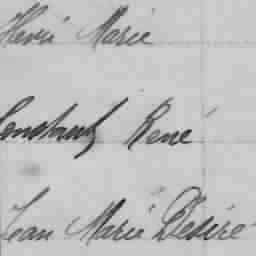 Henri Marie
Constant René
Jean Marie Désiré